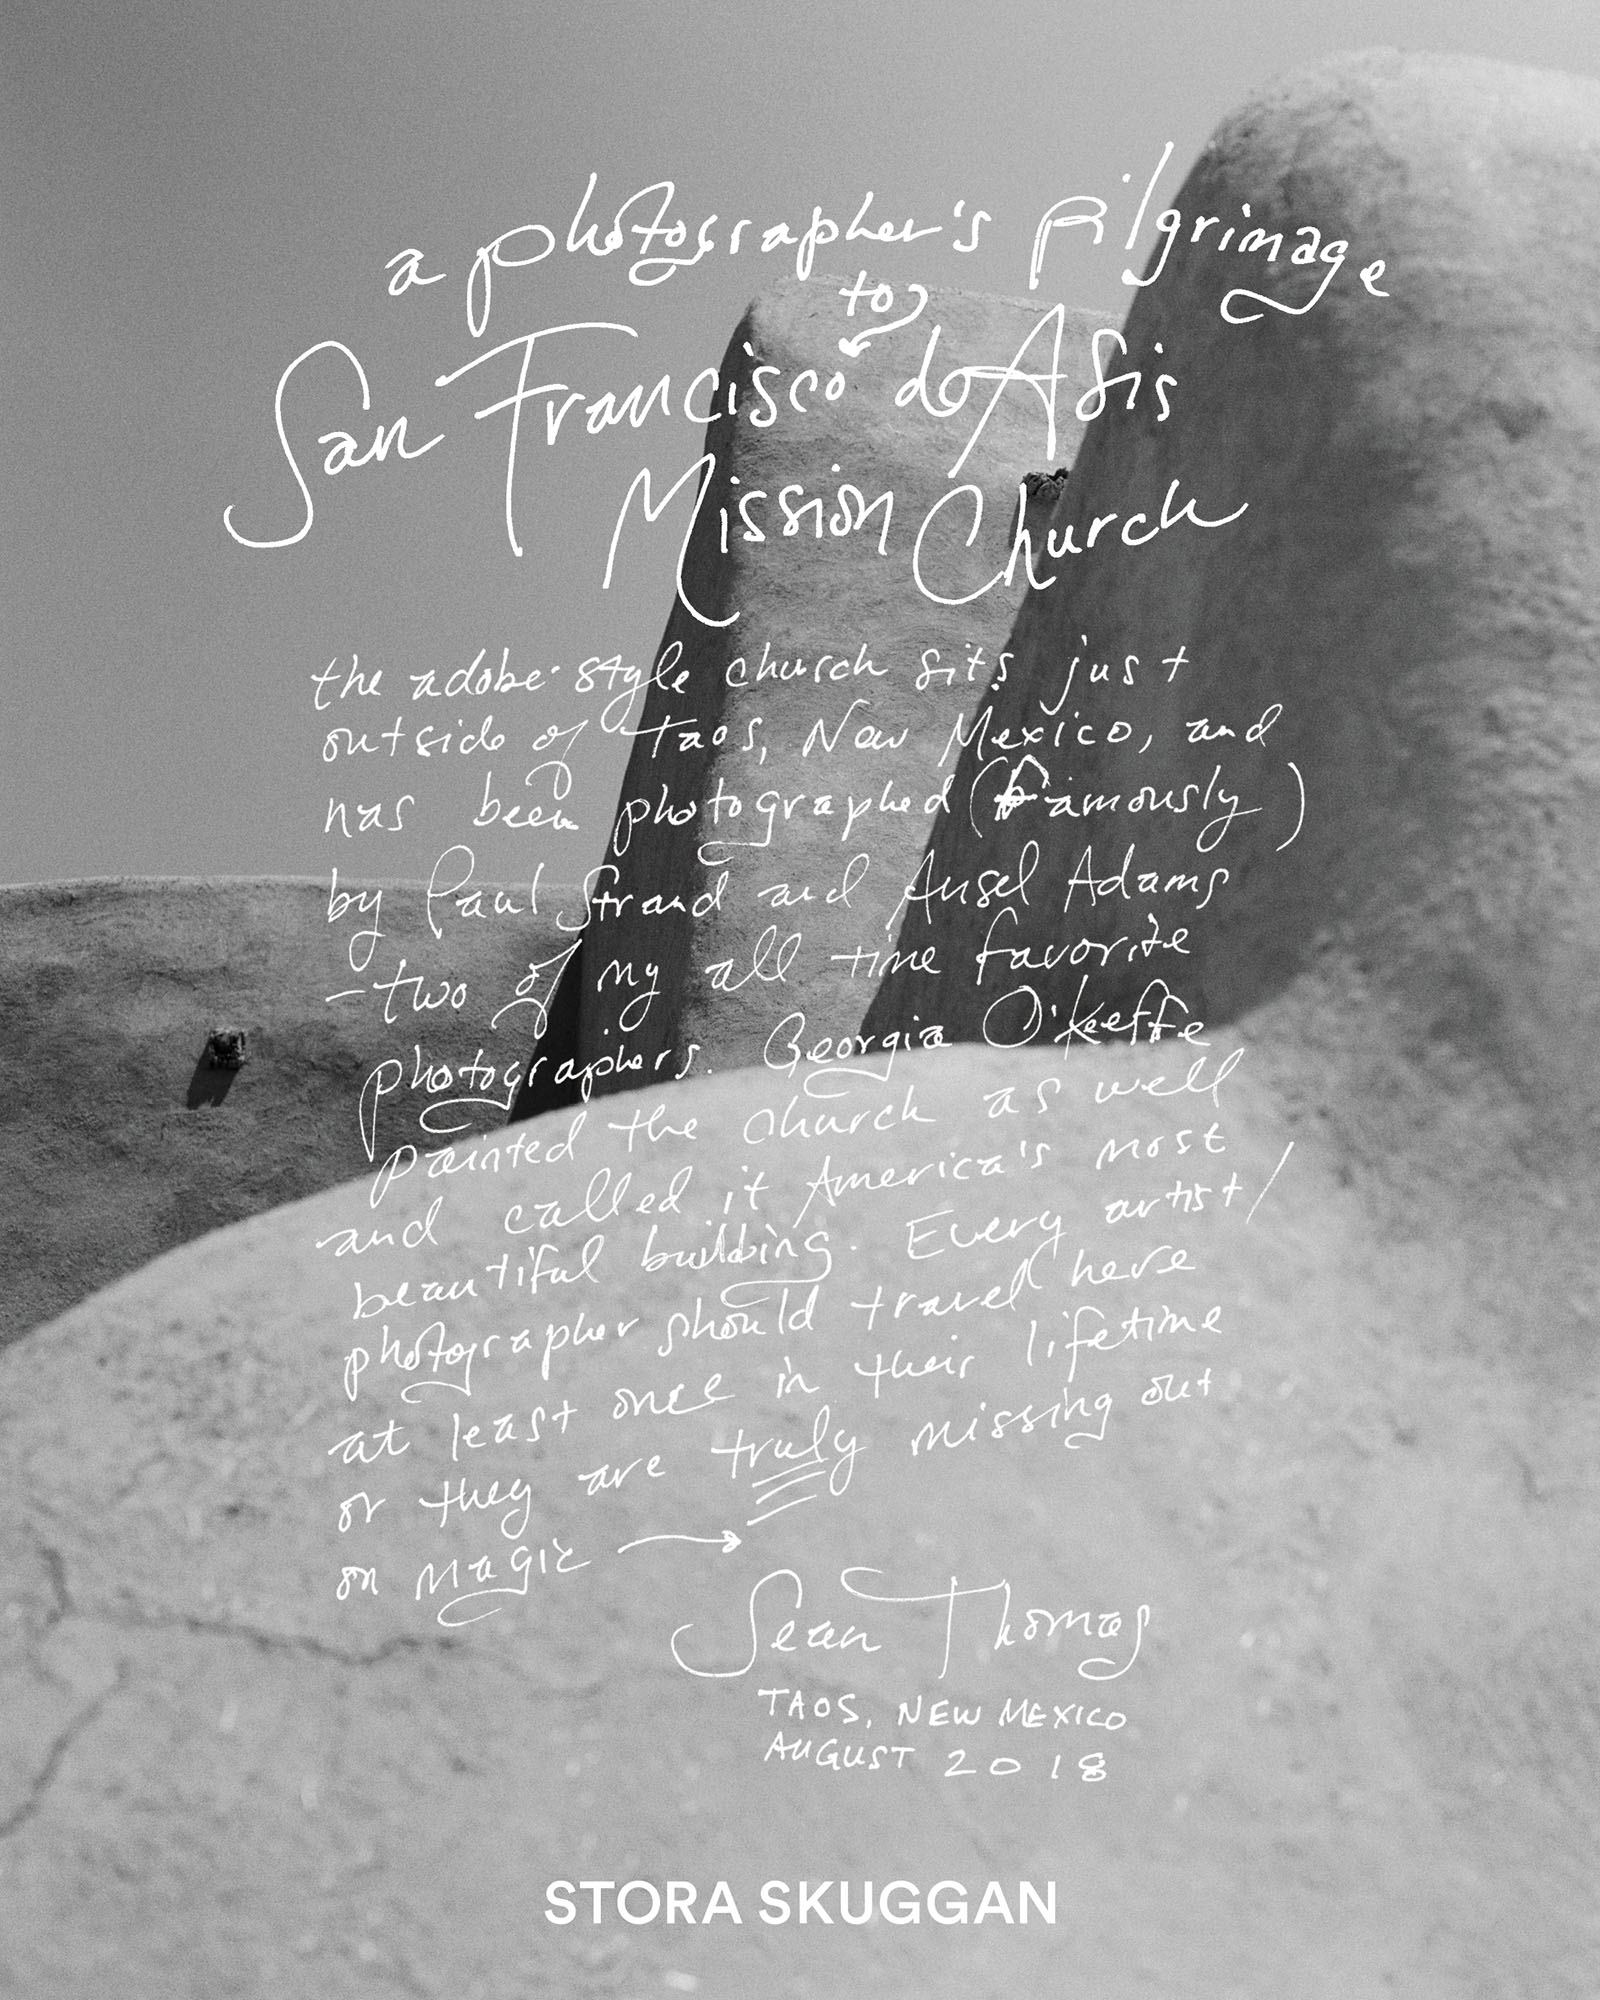 a photographer's pilgrimage
to
San Francisco de Asis
Mission Church
the adobe-style church sits just
outside of Taos, New Mexico, and
has been photographed (famously)
by Paul Strand and Ansel Adams
—two of my all time favorite
photographers. Georgia O'Keeffe
painted the church as well
and called it America's most
beautiful building. Every artist/
photographer should travel here
at least once in their lifetime
or they are truly missing out
on magic →
Sean Thomas
TAOS, NEW MEXICO
AUGUST 2018
STORA SKUGGAN